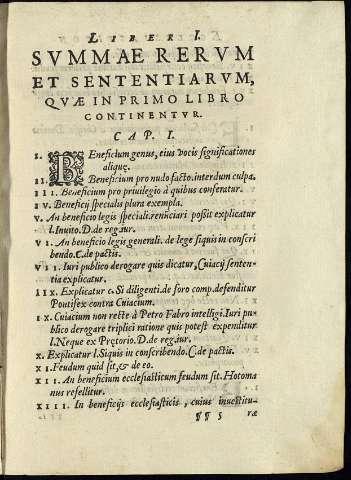 LIBER I.
SVMMAE RERVM
ET SENTENTIARVM,
QVÆ IN PRIMO LIBRO
CONTINENTVR.
CAP. I.
I. BEneficium genus, eius vocis significationes
aliquę.
II. Beneficium pro nudo facto. interdum culpa.
III. Beneficium pro priuilegio à quibus conferatur.
IV. Beneficij specialis plura exempla.
V. An beneficio legis speciali. renūciari possit explicatur
l. Inuito. D. de reg. iur.
VI. An beneficio legis generali. de lege siquis in conscri
bendo. C. de pactis.
VII. Iuri publico derogare quis dicatur, Cuiacij senten-
tia explicatur.
IIX. Explicatur c. Si diligenti. de foro comp. defenditur
Pontifex contra Cuiacium.
IX. Cuiacium non recte à Petro Fabro intelligi. Iuri pu-
blico derogare triplici ratione quis potest expenditur
l. Neque ex Prętorio. D. de reg. iur.
X. Explicatur l. Siquis in conscribendo. C. de pactis.
XI. Feudum quid sit, & de eo.
XII. An beneficium ecclesiasticum feudum sit. Hotoma
nus refellitur.
XIII. In beneficijs ecclesiasticis, cuius inuestitu-
¶¶ 5 ræ